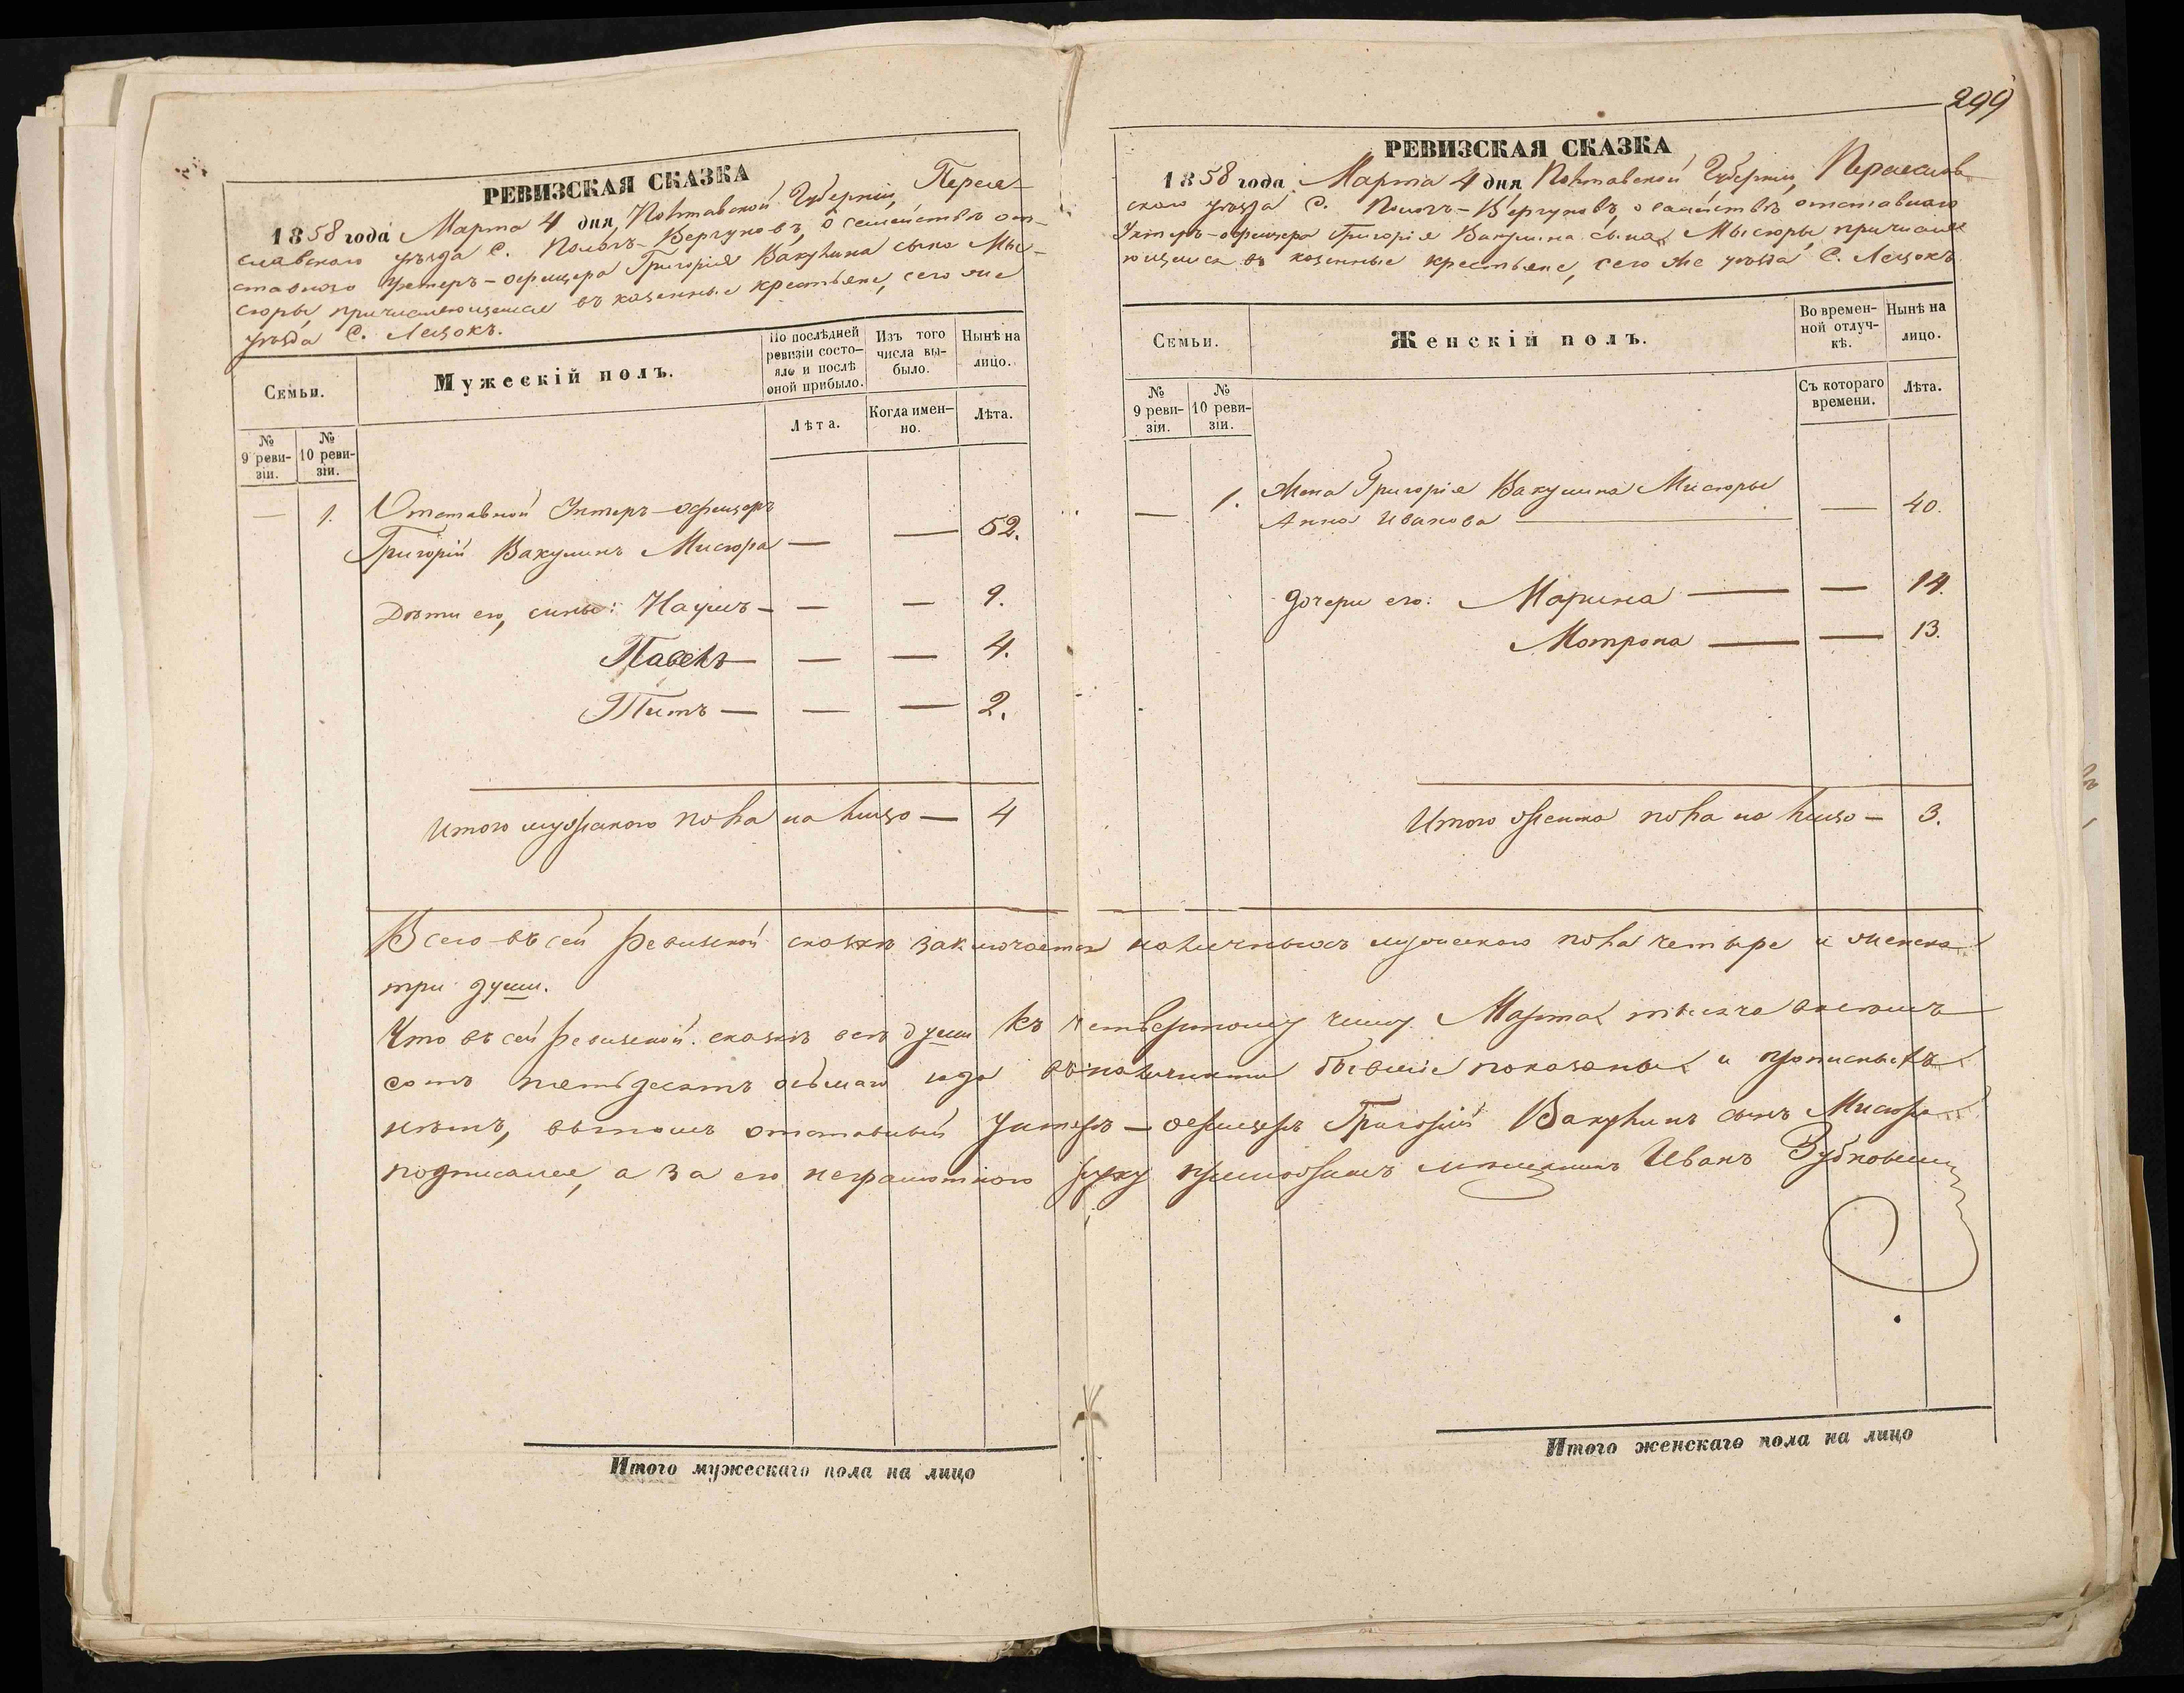 299
РЕВИЗСКАЯ СКАЗКА
1858 года Марта 4 дня, Полтавской Губерніи, Перея-
славскаго уѣзда С. Помокъ-Вергуновъ, о семействѣ от-
ставнаго Унтеръ-офицера Григорія Вакулина сына Мы-
сюры причисляющемся въ казенные крестьяне, сего же
уѣзда С. Лецокъ.
Семьи.
Мужескій полъ.
По послѣдней ревизіи состо-яло и послѣ оной прибыло.
Изъ того числа вы-было.
Нынѣ на лицо.
№ 9 реви-зіи.
№ 10 реви-зіи.
Лѣта.
Когда имен-но.
Лѣта.
— 1. Отставной Унтеръ-офицеръ
Григорій Вакулинъ Мисюра — — 52.
Дѣти его, сины: Наумъ — — — 9.
Павелъ — — — 4.
Титъ — — — 2.
Итого мужскаго пола на лицо — 4
РЕВИЗСКАЯ СКАЗКА
1858 года Марта 4 дня Полтавской Губерніи, Переяслав
скаго уѣзда С. Помокъ-Вергуновъ, о семействѣ отставнаго
Унтеръ-офицера Григорія Вакулина сына Мысюры причисля
ющемся въ казенные крестьяне, сего же уѣзда С. Лецокъ
Семьи.
Женскій полъ.
Во времен-ной отлуч-кѣ.
Нынѣ на лицо.
№ 9 реви-зіи.
№ 10 реви-зіи.
Съ котораго времени.
Лѣта.
— 1. Жена Григорія Вакулина Мисюры
Анна Иванова — — 40.
Дочери его: Марина — — 14.
Мотрона — — 13.
Итого женска пола на лицо — 3.
Всего въ сей Ревизской сказкѣ заключается наличныхъ мужескаго пола четыре и женска
три души.
Что въ сей Ревизской сказкѣ всѣ души къ четвертому числу Марта тысяча восемъ
сотъ пятьдесятъ осьмаго года въ наличности бывшіе показаны и прописныхъ
нѣтъ, въ томъ отставный Унтеръ-офицеръ Григорій Вакулинъ сынъ Мисюра
подписался, а за его неграмотного руку приложилъ мѣщанинъ Иванъ
Итого мужескаго пола на лицо
Итого женскаго пола на лицо